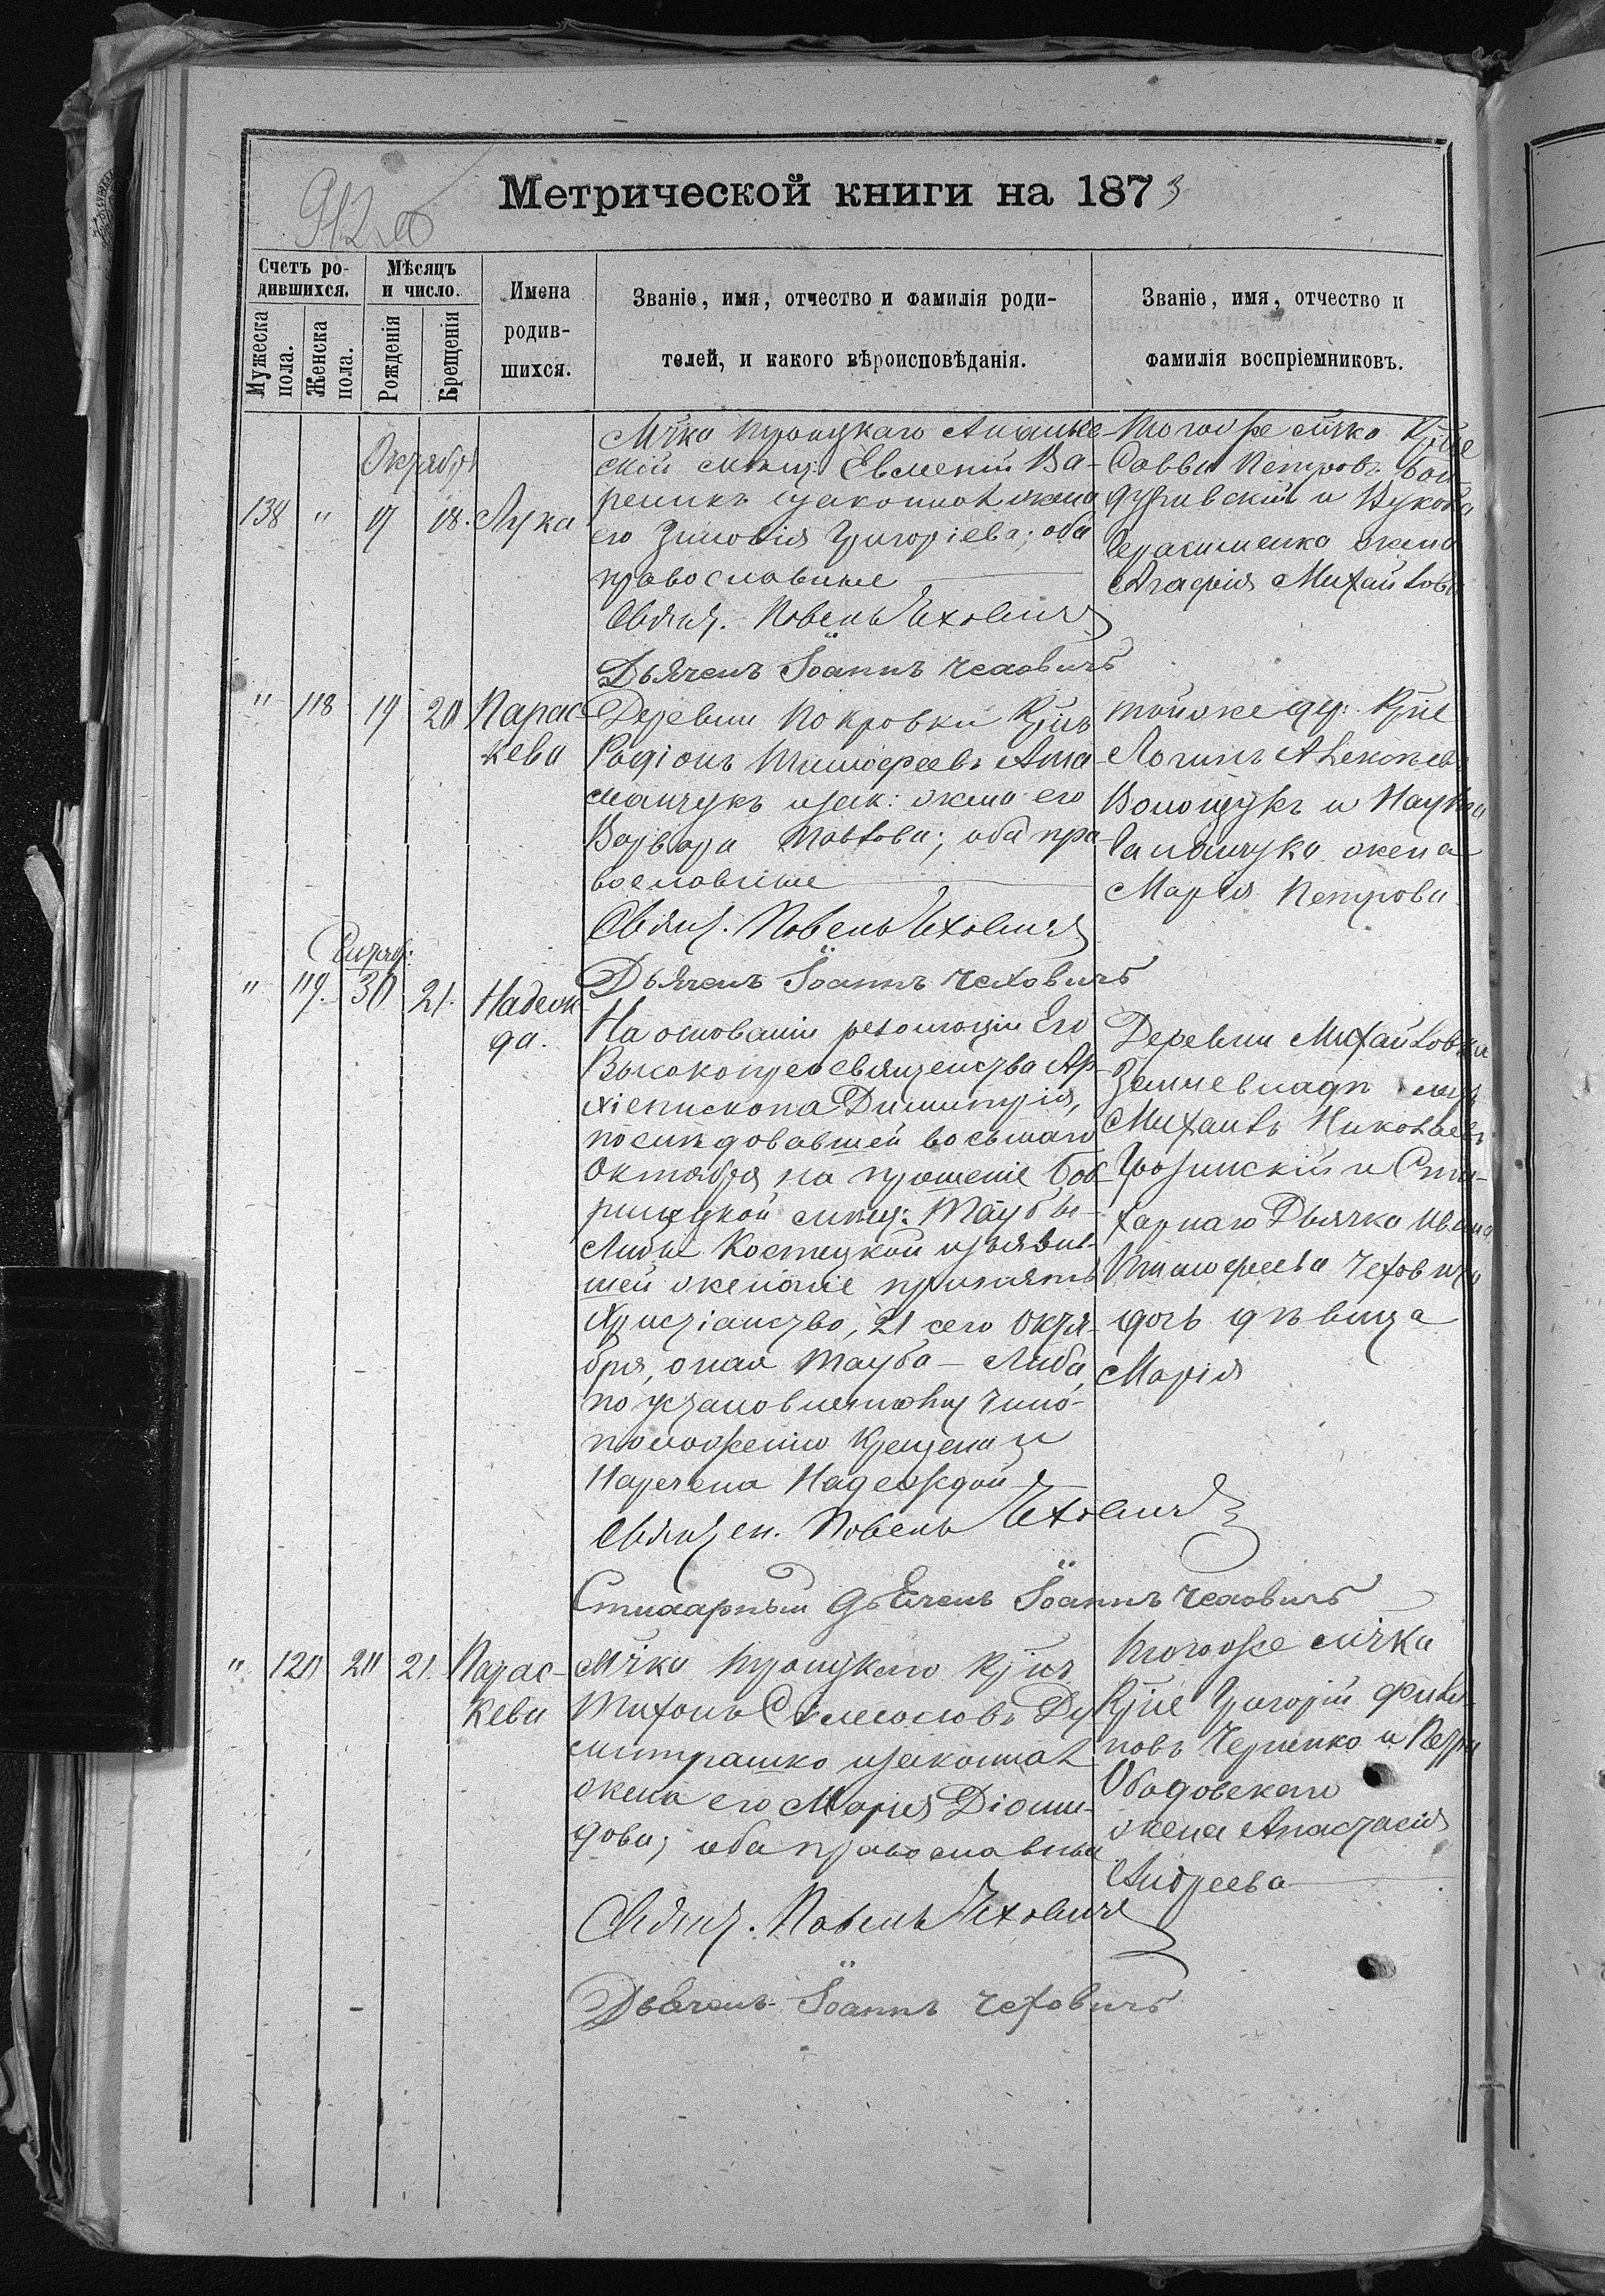 912 об
Метрической книги на 1873
Счетъ ро-
дившихся.
Мѣсяцъ
и число.
Мужеска
пола.
Женска
пола.
Рожденія
Крещенія
Имена
родив-
шихся.
Званіе, имя, отчество и фамилія роди-
телей, и какого вѣроисповѣданія.
Званіе, имя, отчество и
фамилія воспріемниковъ.
Октября
138 " 17 18. Лука
Мѣчка Троицкаго Ананьев-
скій мѣщ: Евменій Ва-
реникъ изаконная жена
его Зиновія Григоріева; оба
православные
Священ. Павелъ Чеховичъ
Дьячекъ Іоаннъ Чеховичъ
Тогоже мѣчка Крѣне
Савва Петровъ
и
Герасименка жена
Агафія Михайлова
" 118 19 20 Парас-
кева
Деревни Покровки Крѣнъ
Родіонъ Тимофеевъ Ата-
манчукъ изак: жена его
Варвара Павлова; оба пра-
вославные
Священ. Павелъ Чеховичъ
Дьячекъ Іоаннъ Чеховичъ
тойже дер: Крѣне
Логинъ Алексѣевъ
Волощукъ и Наума
жена
Марія Петрова
Сентяб:
" 119. 30 21. Надеж-
да.
На основаніи резолюціи Его
Высокопреосвященства Ар-
хіепископа Димитрія,
послѣдовавшей восьмаго
Октября на прошеніе Боб-
ринецкой мѣщ: Таубы-
Либы Костецкой изъявив-
шей желаніе принять
Христіанство, 21 сего Октя-
бря, оная Тауба-Либа,
по установленному чино-
положенію крещена и
Наречена Надеждой
Священ. Павелъ Чеховичъ
Стихарный дьячекъ Іоаннъ Чеховичъ
Деревни Михайловки
Землевладѣлецъ
Михаилъ Николаевъ
Грозинскій и Сти-
харнаго Дьячка Ивана
Тимофеева Чеховича
дочь дѣвица
Марія
" 120 20 21. Парас-
кева
Мѣчка Троицкаго Крѣнъ
Тихонъ Самсоновъ Ду-
митрашко изаконная
жена его Марія Діоми-
дова; оба православные
Священ. Павелъ Чеховичъ
Дьячекъ Іоаннъ Чеховичъ
Тогоже мѣчка
Крѣне Григорій Фили-
повъ Черненко и Петра
Ободовскаго
жена Анастасія
Андреева